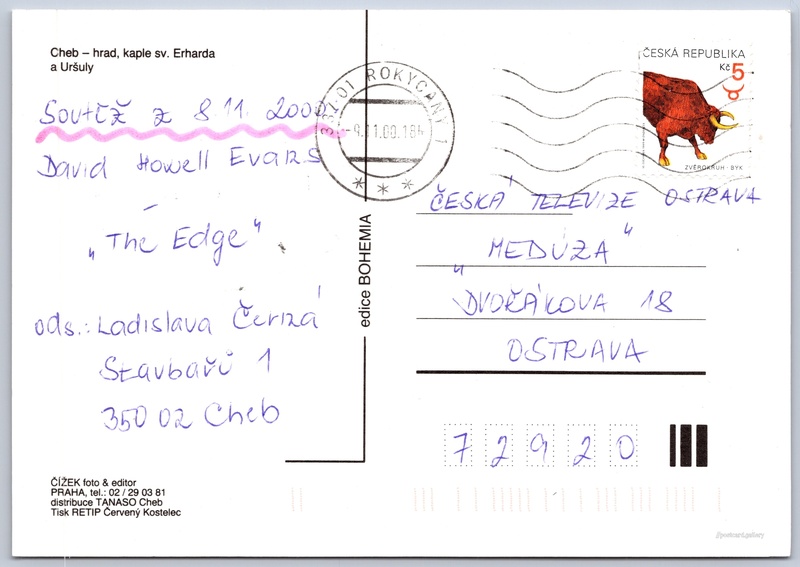 Cheb – hrad, kaple sv. Erharda
a Uršuly
Soutěž z 8.11. 2000
David Howell Evans
–
„The Edge"
ods.: Ladislava Čerizá
Stavbařů 1
350 02 Cheb
ČÍŽEK foto & editor
PRAHA, tel.: 02 / 29 03 81
distribuce TANASO Cheb
Tisk RETIP Červený Kostelec
edice BOHEMIA
337 01 ROKYCANY 1
-9.11.00.18
* * *
ČESKÁ REPUBLIKA
Kč 5
ZVĚROKRUH - BÝK
ČESKÁ TELEVIZE OSTRAVA
„MEDÚZA"
DVOŘÁKOVA 18
OSTRAVA
72920
//postcard.gallery